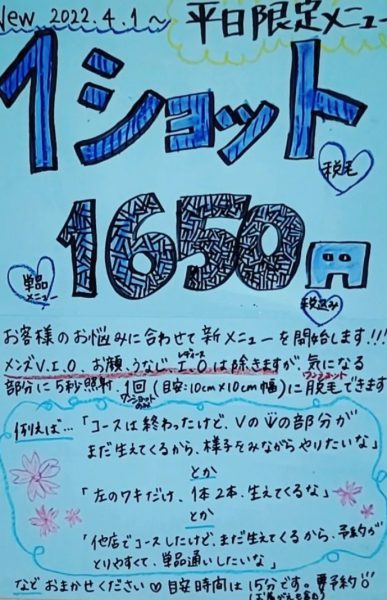 New 2022.4.1～ 平日限定メニュー
1ショット
脱毛
1650円
単品メニュー
税込み
お客様のお悩みに合わせて新メニューを開始します!!!
メンズV.I.O お顔、うなじ、レディースI、Oは除きますが気になる
部分に5秒照射 1回(目安:10cm×10cm幅)に脱毛できます
ワンショットのみ
ワンショット
例えば…「コースは終わったけど、Vの の部分が
まだ生えてくるから、様子をみながらやりたいな」
とか
「左のワキだけ、1本2本、生えてくるな」
とか
「他店でコースしたけど、まだ生えてくるから、予約が
とりやすくて、単品通いしたいな」
などおまかせください♡ 目安時間は15分です。要予約